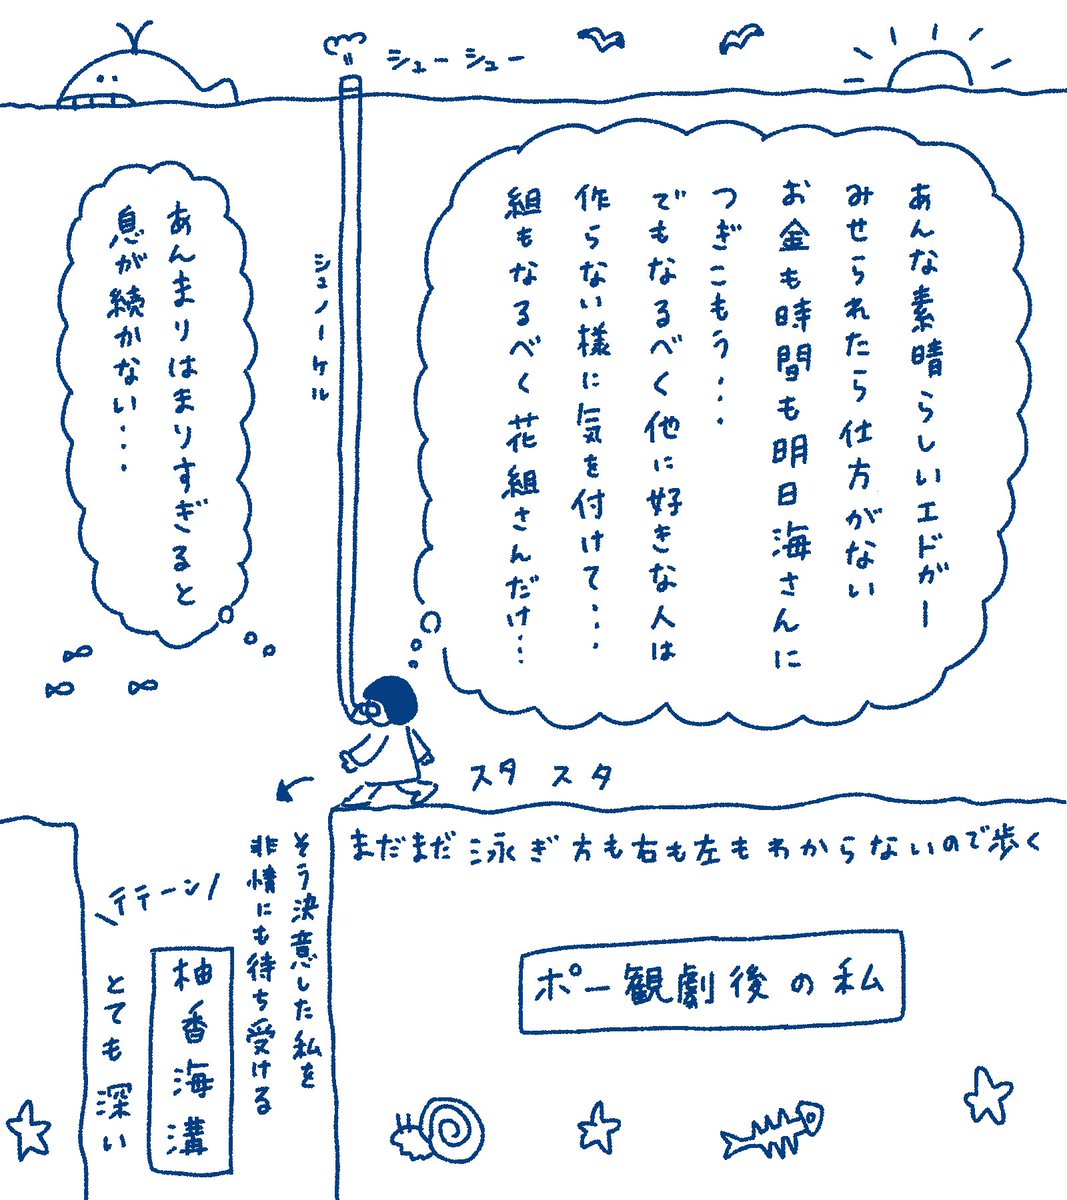 シューシュー
あんな素晴らしいエドガー
みせられたら仕方がない
お金も時間も明日海さんに
つぎこもう・・・
でもなるべく他に好きな人は
作らない様に気を付けて・・・
組もなるべく花組さんだけ・・・
シュノーケル
あんまりはまりすぎると
息が続かない・・・
スタ スタ
まだまだ泳ぎ方も右も左もわからないので歩く
ポー観劇後の私
そう決意した私を
非情にも待ち受ける
テテーン
柚香海溝
とても深い